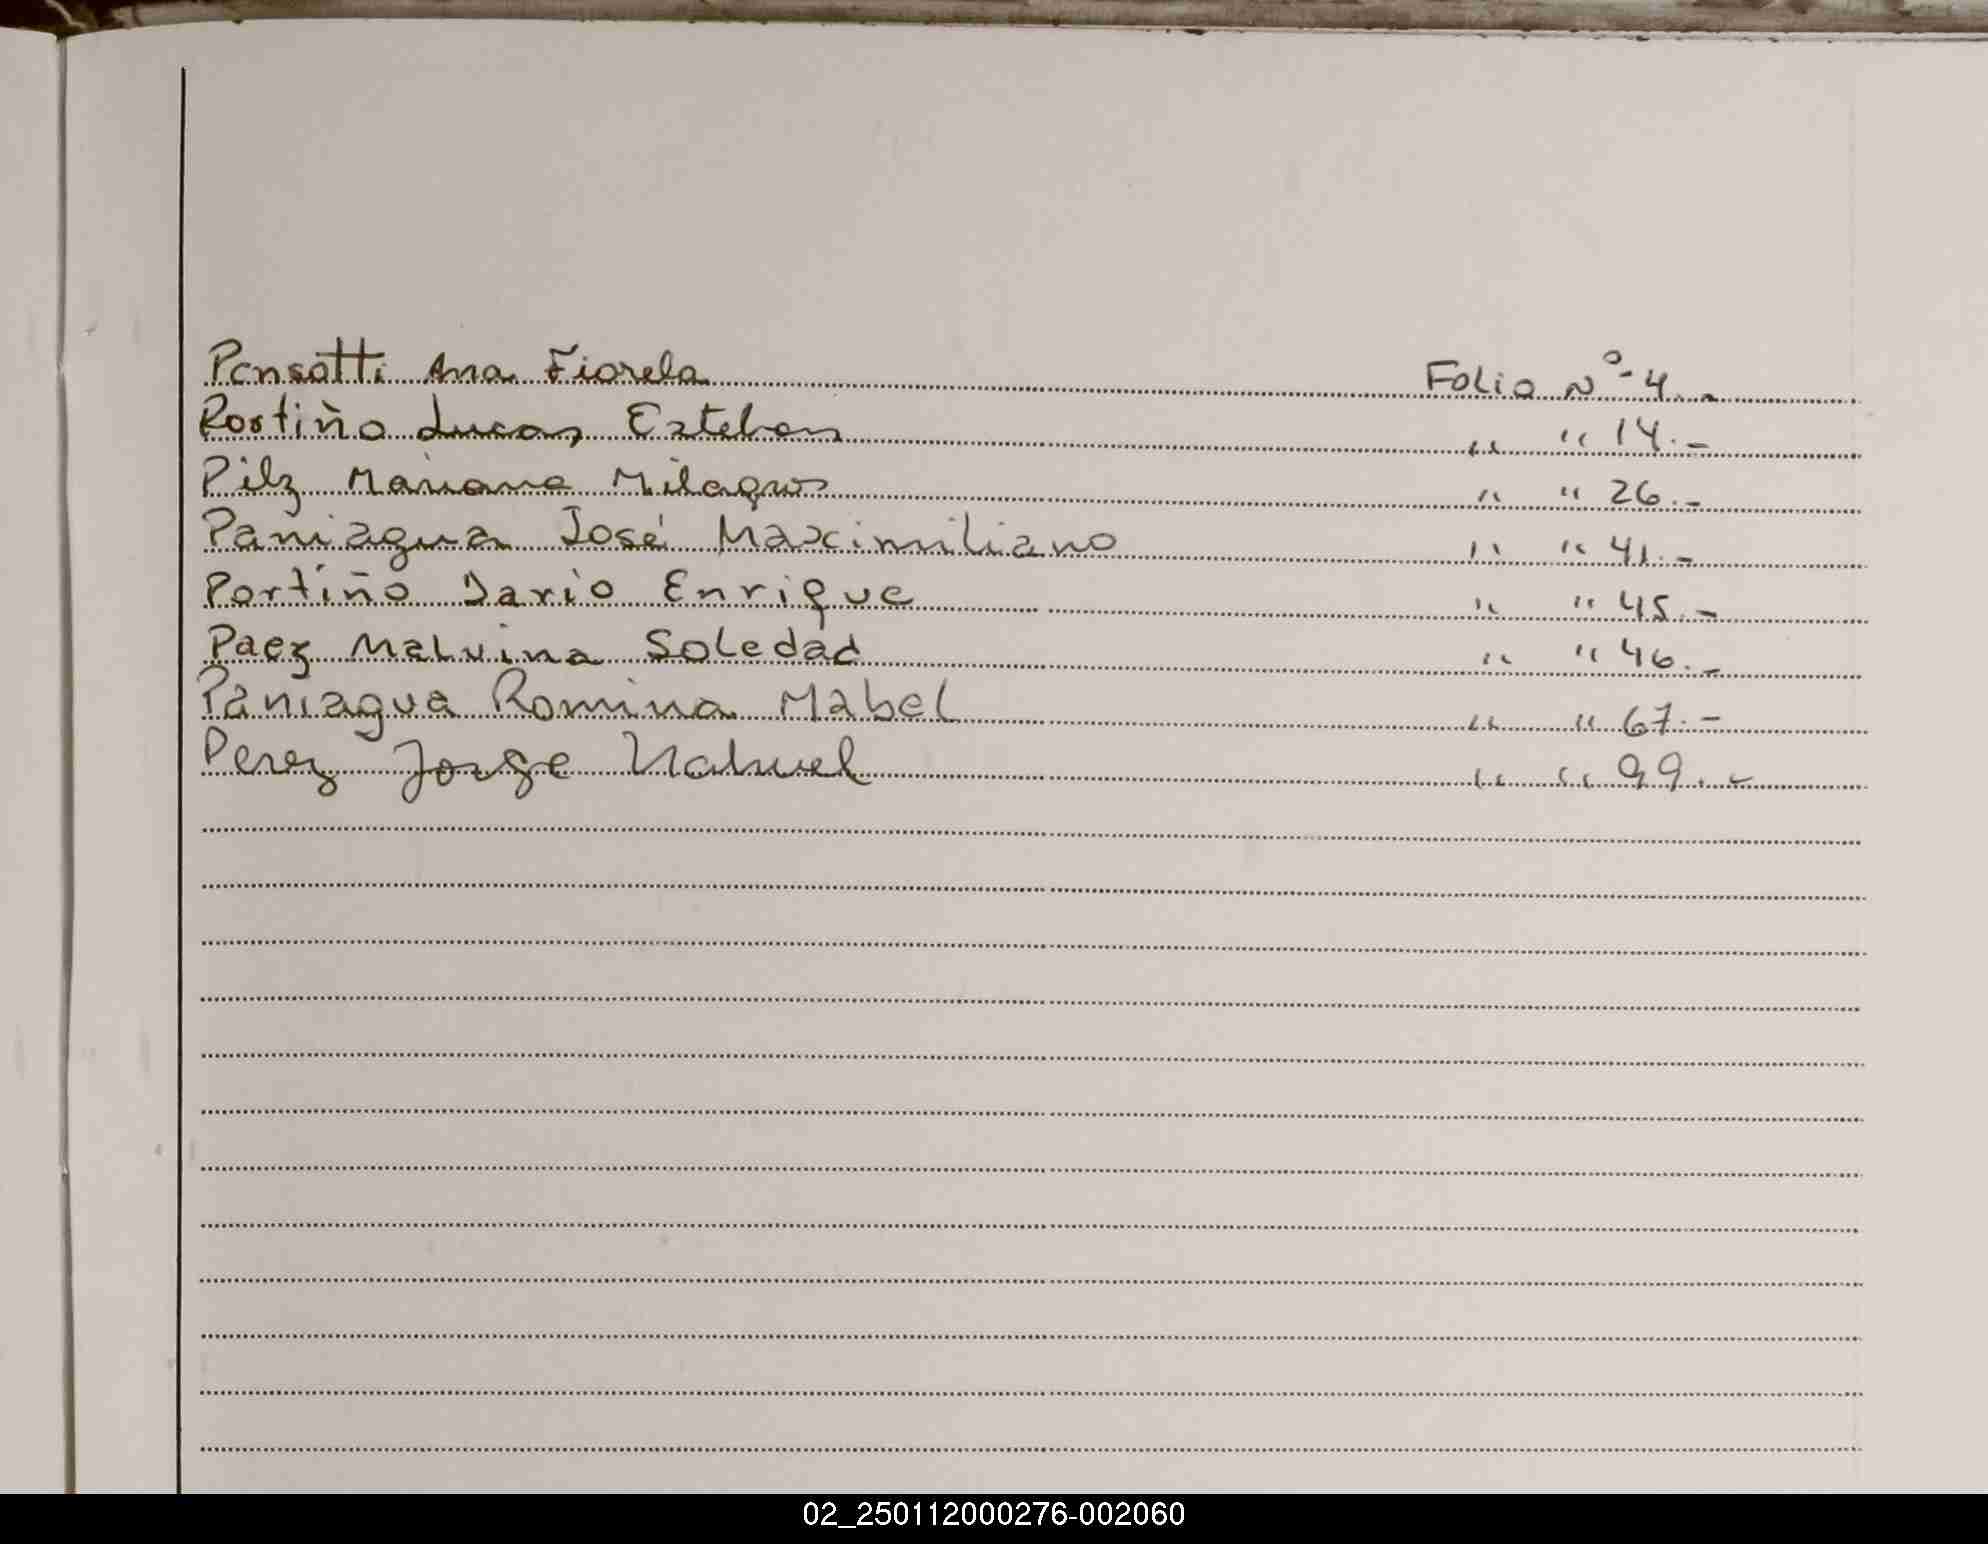 Ponsatti Ana Fiorela Folio Nº 4.-
Portiño Lucas Esteban " " 14.-
Pilz Mariana Milagros " " 26.-
Paniagua José Maximiliano " " 41.-
Portiño Dario Enrique " " 45.-
Paez Malvina Soledad " " 46.-
Paniagua Romina Mabel " " 67.-
Perez Jorge Nahuel " " 99.-
02_250112000276-002060